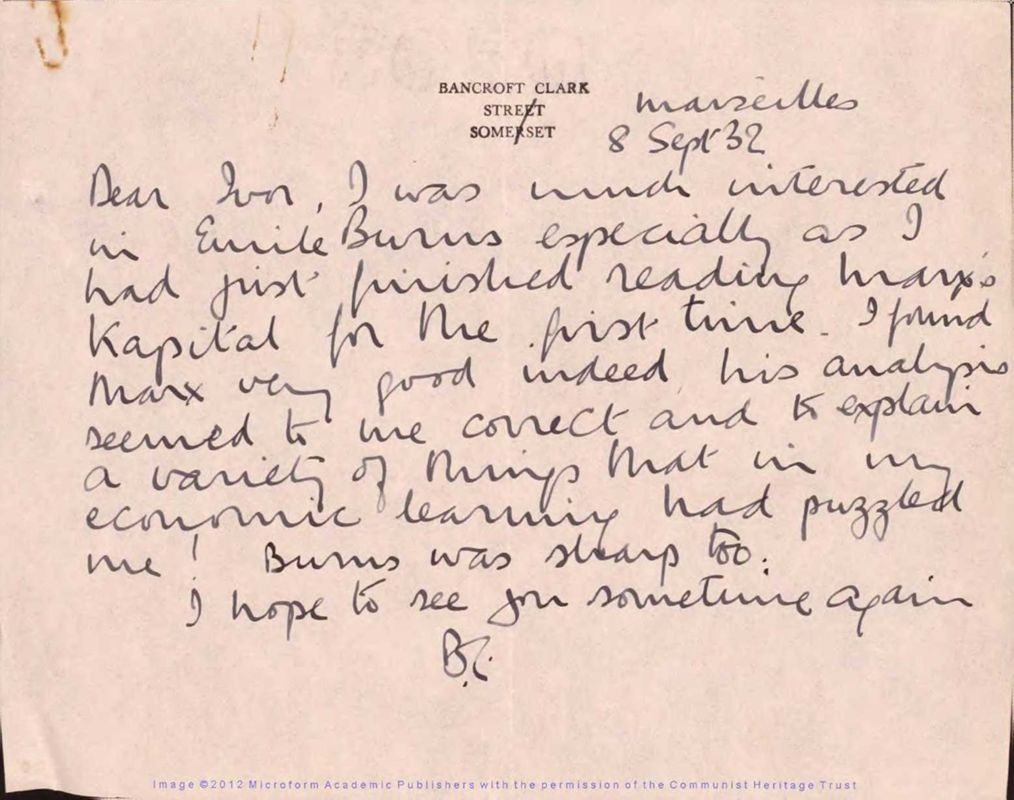 BANCROFT CLARK
STREET
SOMERSET
Marseilles
8 Sept 32
Dear Ivor, I was much interested
in Emile Burns especially as I
had just finished reading Marx's
Kapital for the first time. I found
Marx very good indeed, his analysis
seemed to me correct and to explain
a variety of things that in my
economic learning had puzzled
me! Burns was sharp too.
I hope to see you sometime again
B.C.
Image ©2012 Microform Academic Publishers with the permission of the Communist Heritage Trust